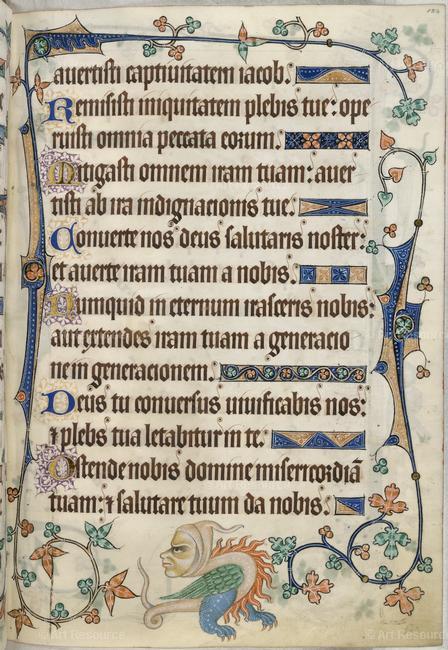 auertisti captiuitatem iacob.
Remisisti iniquitatem plebis tue: ope
ruisti omnia peccata eorum.
Mitigasti omnem iram tuam: auer
tisti ab ira indignacionis tue.
Conuerte nos deus salutaris noster:
et auerte iram tuam a nobis.
Numquid in eternum irasceris nobis:
aut extendes iram tuam a generacio
ne in generacionem.
Deus tu conuersus uiuificabis nos:
⁊ plebs tua letabitur in te.
Ostende nobis domine misericordiā
tuam: ⁊ salutare tuum da nobis.
© Art Resource © Art Resource